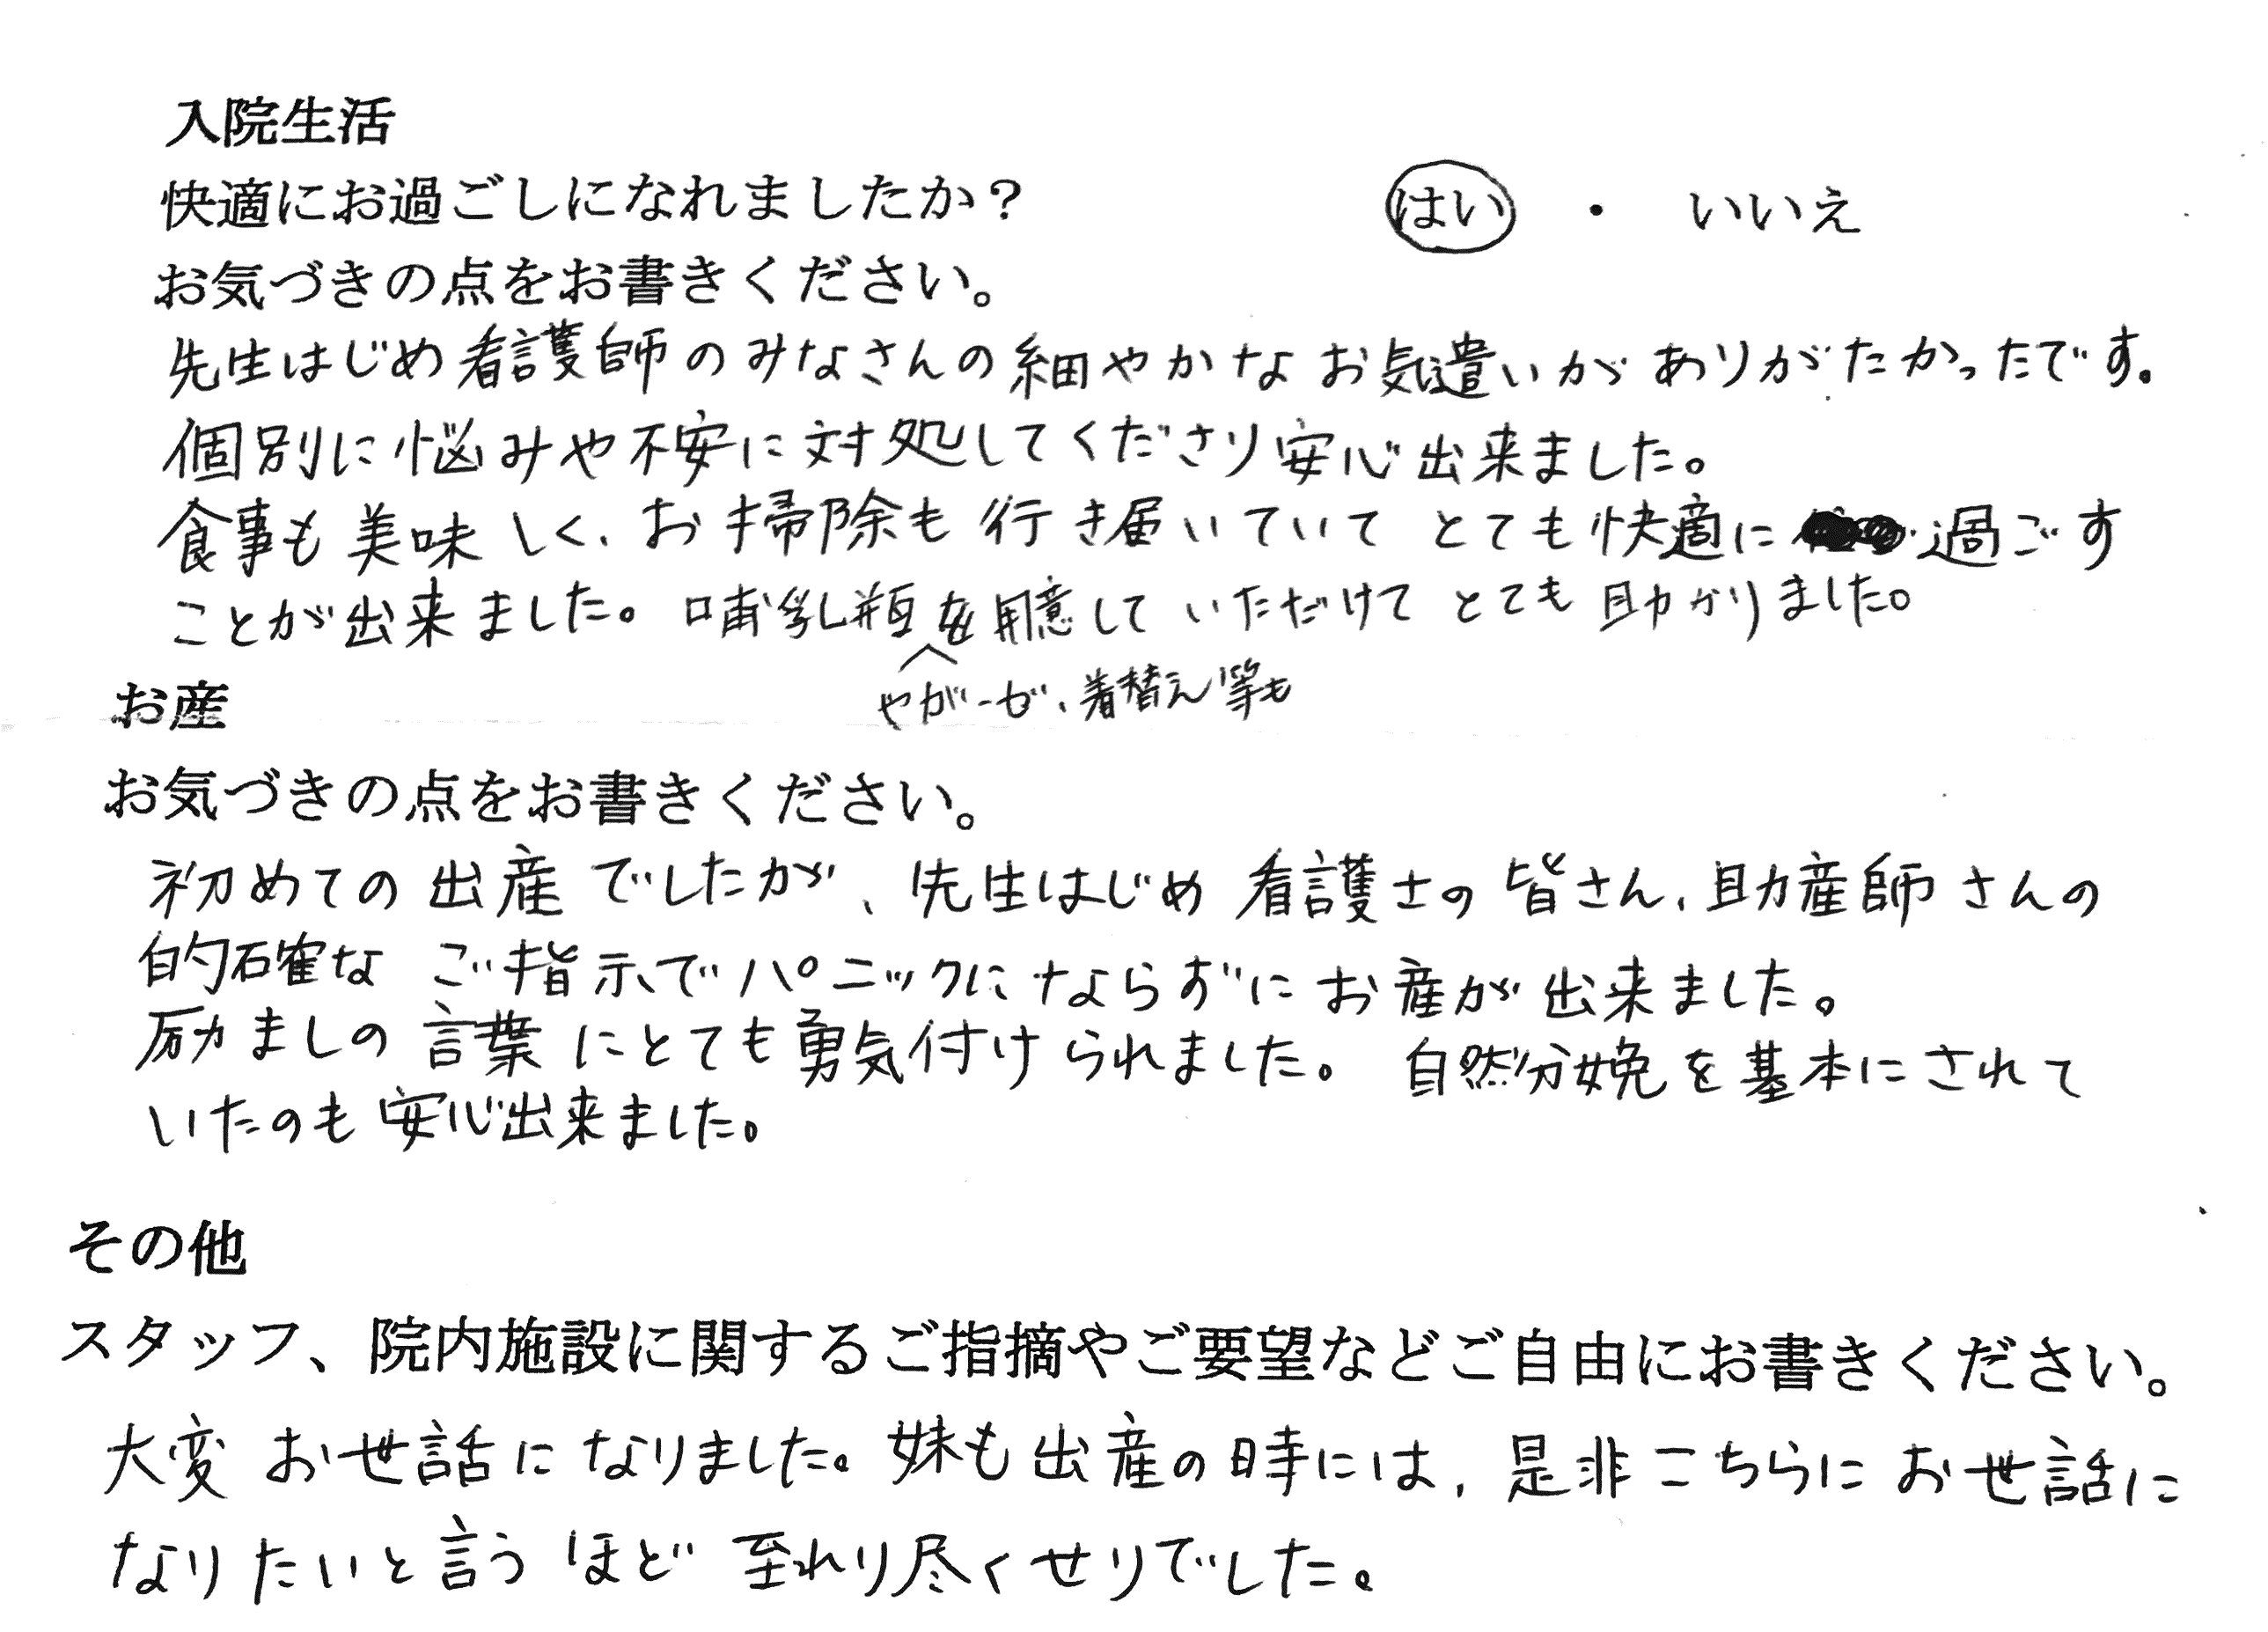 入院生活
快適にお過ごしになれましたか？ はい ・ いいえ
お気づきの点をお書きください。
先生はじめ看護師のみなさんの細やかなお気遣いがありがたかったです。
個別に悩みや不安に対処してくださり安心出来ました。
食事も美味しく、お掃除も行き届いていてとても快適に過ごす
ことが出来ました。哺乳瓶を用意していただけてとても助かりました。
やガーゼ、着替え等も
お産
お気づきの点をお書きください。
初めての出産でしたが、先生はじめ看護士の皆さん、助産師さんの
的確なご指示でパニックにならずにお産が出来ました。
励ましの言葉にとても勇気付けられました。自然分娩を基本にされて
いたのも安心出来ました。
その他
スタッフ、院内施設に関するご指摘やご要望などご自由にお書きください。
大変お世話になりました。妹も出産の時には、是非こちらにお世話に
なりたいと言うほど至れり尽くせりでした。